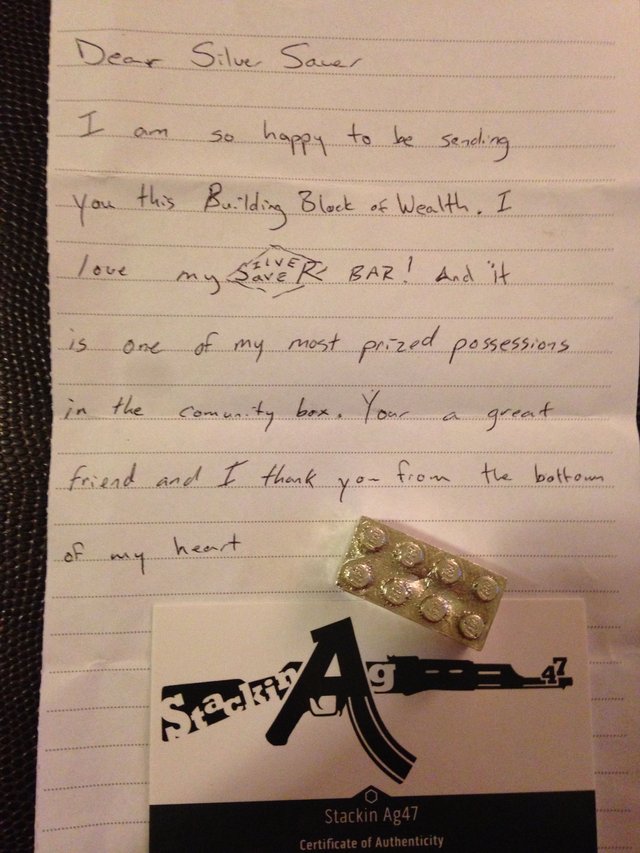 Dear Silver Saver
I am so happy to be sending
you this Building Block of Wealth. I
love my SILVER SAVER BAR! And it
is one of my most prized possessions
in the comunity box. Your a great
friend and I thank you from the bottom
of my heart
Stackin Ag 47
Stackin Ag47
Certificate of Authenticity